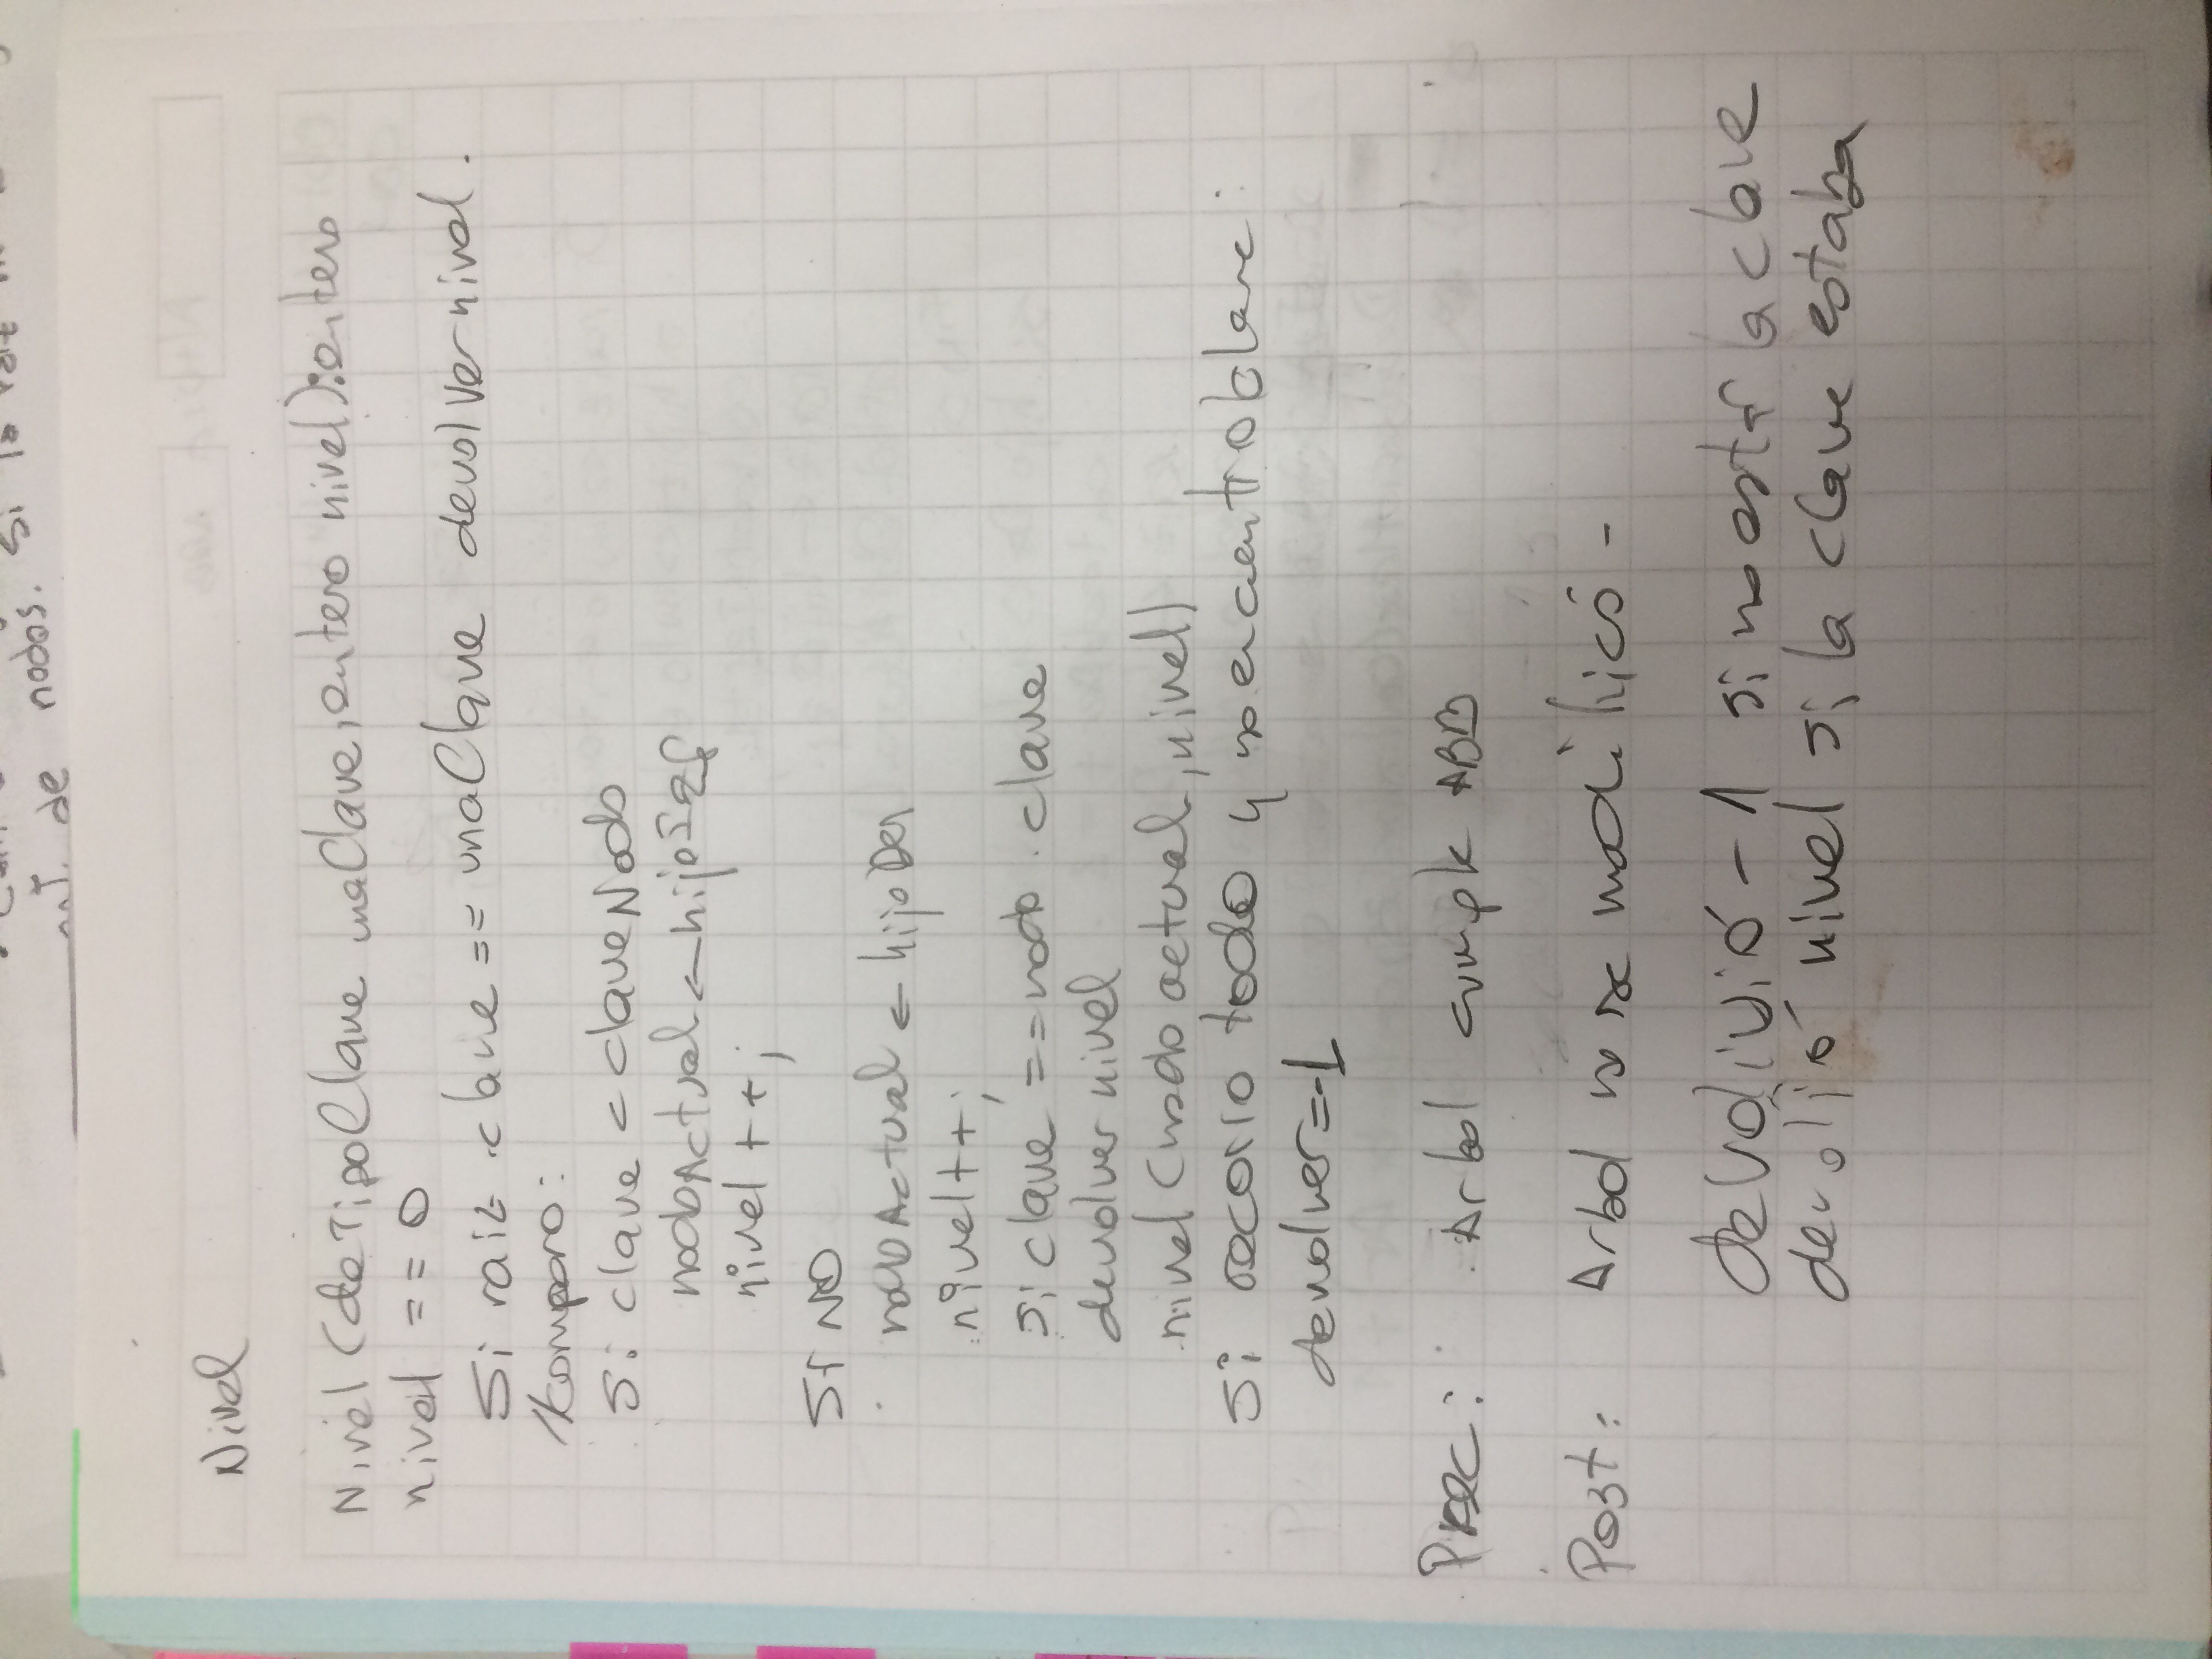 de nodos. Si la raiz
Nivel
Nivel (deTipoClave unaClave, entero nivel):entero
nivel == 0
Si raiz .clave == unaClave devolver nivel.
//comparo:
Si clave < claveNodo
nodoActual ← hijoIzq
nivel ++;
SI NO
nodoActual ← hijoDer
nivel++;
si clave == nodo . clave
devolver nivel
nivel (nodo actual, nivel)
Si recorro todo y no encuentro clave:
devolver=-1
Prec: Arbol cumple ABB
Post: Arbol no se modificó -
devolivió -1 si no está la clave
devolió nivel si la clave estaba